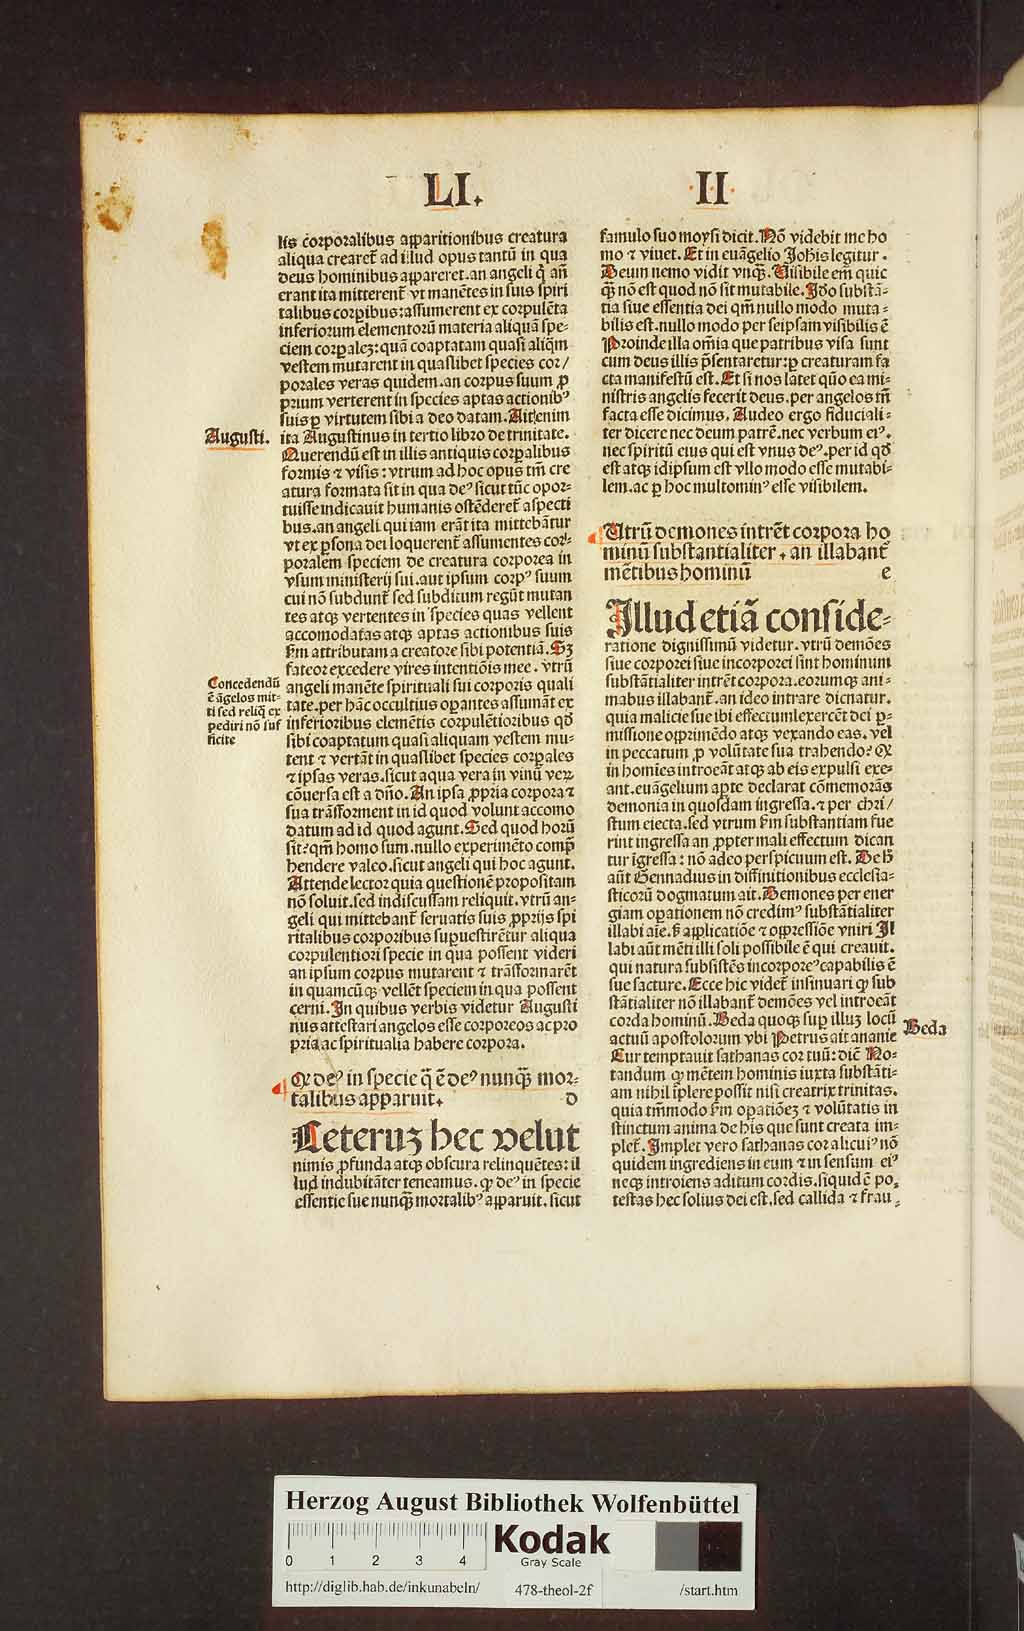 LI. II
lis corporalibus apparitionibus creatura
aliqua crearet᷑ ad illud opus tantū in qua
deus hominibus appareret. an angeli q̇ añ
erant ita mitterent᷑ vt manētes in suis spiri
talibus corꝑibus: assumerent ex corpulēta
inferiorum elementorū materia aliquā spe-
ciem corꝑalez: quā coaptatam quasi aliq̄m
vestem mutarent in quaslibet species cor/
porales veras quidem. an corpus suum ꝓ
prium verterent in species aptas actionibꝰ
suis ꝑ virtutem sibi a deo datam. Ait enim
ita Augustinus in tertio libro de trinitate.
Querendū est in illis antiquis corꝑalibus
formis ⁊ visis: vtrum ad hoc opus tm̄ cre
atura formata sit in qua deꝰ sicut tūc opor-
tuisse indicauit humanis ostēderet᷑ aspecti
bus. an angeli qui iam erāt ita mittebātur
vt ex ꝑsona dei loquerent᷑ assumentes cor-
poralem speciem de creatura corporea in
vsum ministerij sui. aut ipsum corpꝰ suum
cui nō subdunt᷑ sed subditum regūt mutan
tes atqꝫ vertentes in species quas vellent
accomodatas atqꝫ aptas actionibus suis
km̄ attributam a creatore sibi potentiā. Sꝫ
fateor excedere vires intentiōis mee. vtrū
angeli manēte spirituali sui corporis quali
tate. per hāc occultius oꝑantes assumāt ex
inferioribus elemētis corpulētioribus qd̄
sibi coaptatum quasi aliquam vestem mu-
tent ⁊ vertāt in quaslibet species corꝑales
⁊ ipsas veras. sicut aqua vera in vinū veꝝ
cōuersa est a dño. An ipsa ꝓpria corpora ⁊
sua trāsforment in id quod volunt accomo
datum ad id quod agunt. Sed quod horū
sit? qm̄ homo sum. nullo experimēto comp̄
hendere valeo. sicut angeli qui hoc agunt.
Attende lector quia questionē propositam
nō soluit. sed indiscussam reliquit. vtrū an-
geli qui mittebant᷑ seruatis suis ꝓprijs spi
ritalibus corporibus suꝑuestirētur aliqua
corpulentiori specie in qua possent videri
an ipsum corpus mutarent ⁊ trāsformarēt
in quamcūqꝫ vellēt speciem in qua possent
cerni. In quibus verbis videtur Augusti
nus attestari angelos esse corporeos ac pro
pria ac spiritualia habere corpora.
Augusti.
Concedendū
ē āgelos mit-
ti sed reliq̄ ex
pediri nō suf
ficite
¶ Ꝙ deꝰ in specie q̄ ē deꝰ nunqꝫ mor-
talibus apparuit. D
Ceteruꝫ hec velut
nimis ꝓfunda atqꝫ obscura relinquētes: il
lud indubitāter teneamus. ꝙ deꝰ in specie
essentie sue nunqꝫ mortalibꝰ apparuit. sicut
famulo suo moysi dicit. Nō videbit me ho
mo ⁊ viuet. Et in euāgelio Johis legitur.
Deum nemo vidit vnqꝫ. Uisibile em̄ quic
qꝫ nō est quod nō sit mutabile. Ido substā-
tia siue essentia dei qm̄ nullo modo muta-
bilis est. nullo modo per seipsam visibilis ē
Proinde illa om̄ia que patribus visa sunt
cum deus illis p̄sentaretur: ꝑ creaturam fa
cta manifestū est. Et si nos latet quō ea mi-
nistris angelis fecerit deus. per angelos tn̄
facta esse dicimus. Audeo ergo fiduciali-
ter dicere nec deum patrē. nec verbum eiꝰ.
nec spiritū eius qui est vnus deꝰ. per id qd̄
est atqꝫ idipsum est vllo modo esse mutabi-
lem. ac ꝑ hoc multominꝰ esse visibilem.
¶ Utrū demones intrēt corpora ho
minū substantialiter. an illabant᷑
mētibus hominū e
Illud etiā conside-
ratione dignissimū videtur. vtrū demōes
siue corporei siue incorporei sint hominum
substātialiter intrēt corpora. eorumqꝫ ani-
mabus illabant᷑. an ideo intrare dicūatur.
quia malicie sue ibi effectum exercēt dei ꝑ-
missione opprimēdo atqꝫ vexando eas. vel
in peccatum ꝓ volūtate sua trahendo? Ꝙ
in homies introeāt atqꝫ ab eis expulsi exe-
ant. euāgelium aꝑte declarat cōmemorās
demonia in quosdam ingressa. ⁊ per chri/
stum eiecta. sed vtrum km̄ substantiam fue
rint ingressa an ꝓpter mali effectum dican
tur īgressa: nō adeo perspicuum est. De h̄
aūt Gennadius in diffinitionibus ecclesia-
sticorū dogmatum ait. Demones per ener
giam oꝑationem nō credimꝰ substātialiter
illabi aīe. sꝫ applicatiōe ⁊ oppressiōe vniri Il
labi aūt mēti illi soli possibile ē qui creauit.
qui natura subsistēs incorporeꝰ capabilis ē
sue facture. Ecce hic videt᷑ insinuari ꝙ sub
stātialiter nō illabant᷑ demōes vel introeāt
corda hominū. Beda quoqꝫ suꝑ illuꝫ locū
actuū apostolorum vbi Petrus ait ananie
Cur temptauit sathanas cor tuū: diċ. No-
tandum ꝙ mētem hominis iuxta substāti-
am nihil īplere possit nisi creatrix trinitas.
quia tm̄modo km̄ oꝑatiōeꝫ ⁊ volūtatis in
stinctum anima de his que sunt creata im-
plet᷑. Implet vero sathanas cor alicuiꝰ nō
quidem ingrediens in eum ⁊ in sensum eiꝰ
neqꝫ introiens aditum cordis. siquidē po-
testas hec solius dei est. sed callida ⁊ frau-
Beda
Herzog August Bibliothek Wolfenbüttel
0 1 2 3 4
Kodak
Gray Scale
http://diglib.hab.de/inkunabeln/ 478-theol-2f /start.htm